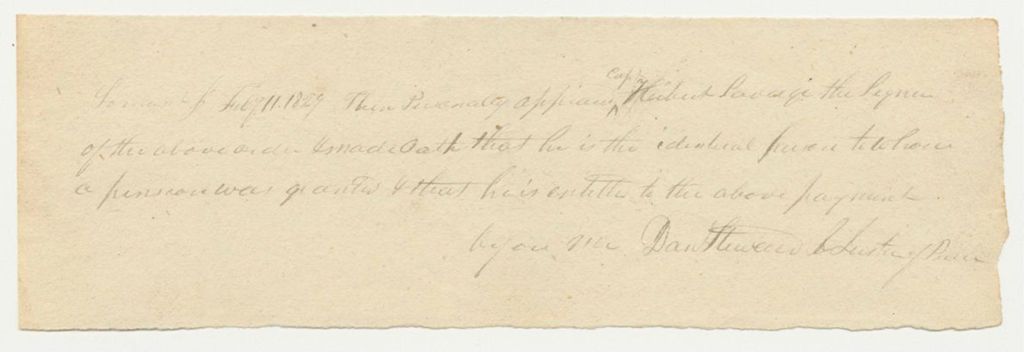 Somerset ss Feby 11. 1829 Then Personally appeared Capt Savage the Signer
of the above order & made Oath that he is the identical person to whom
a pension was granted & that he is entitled to the above payment
before me Dan Steward Justice of Peace